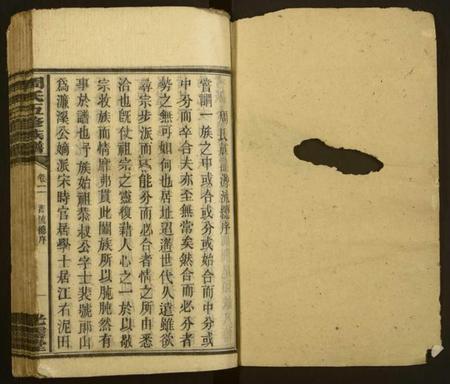 周氏
源流總序
嘗謂一族之中或合或分或始合而中分或
中分而卒合夫亦至無常矣然合而必分者
勢之無可如何也居址迢遞世代久遠雖欲
尋宗步派而莫能分而必合者情之所由悉
洽也旣仗祖宗之靈復藉人心之一於以敬
宗收族而情靡弗貫此闔族所以肫肫然有
事於譜也吾族始祖恭叔公字士裴號雨山
爲濂溪公嫡派宋時官居學士居江右泥田
周氏五修族譜
卷二
源流總序
一